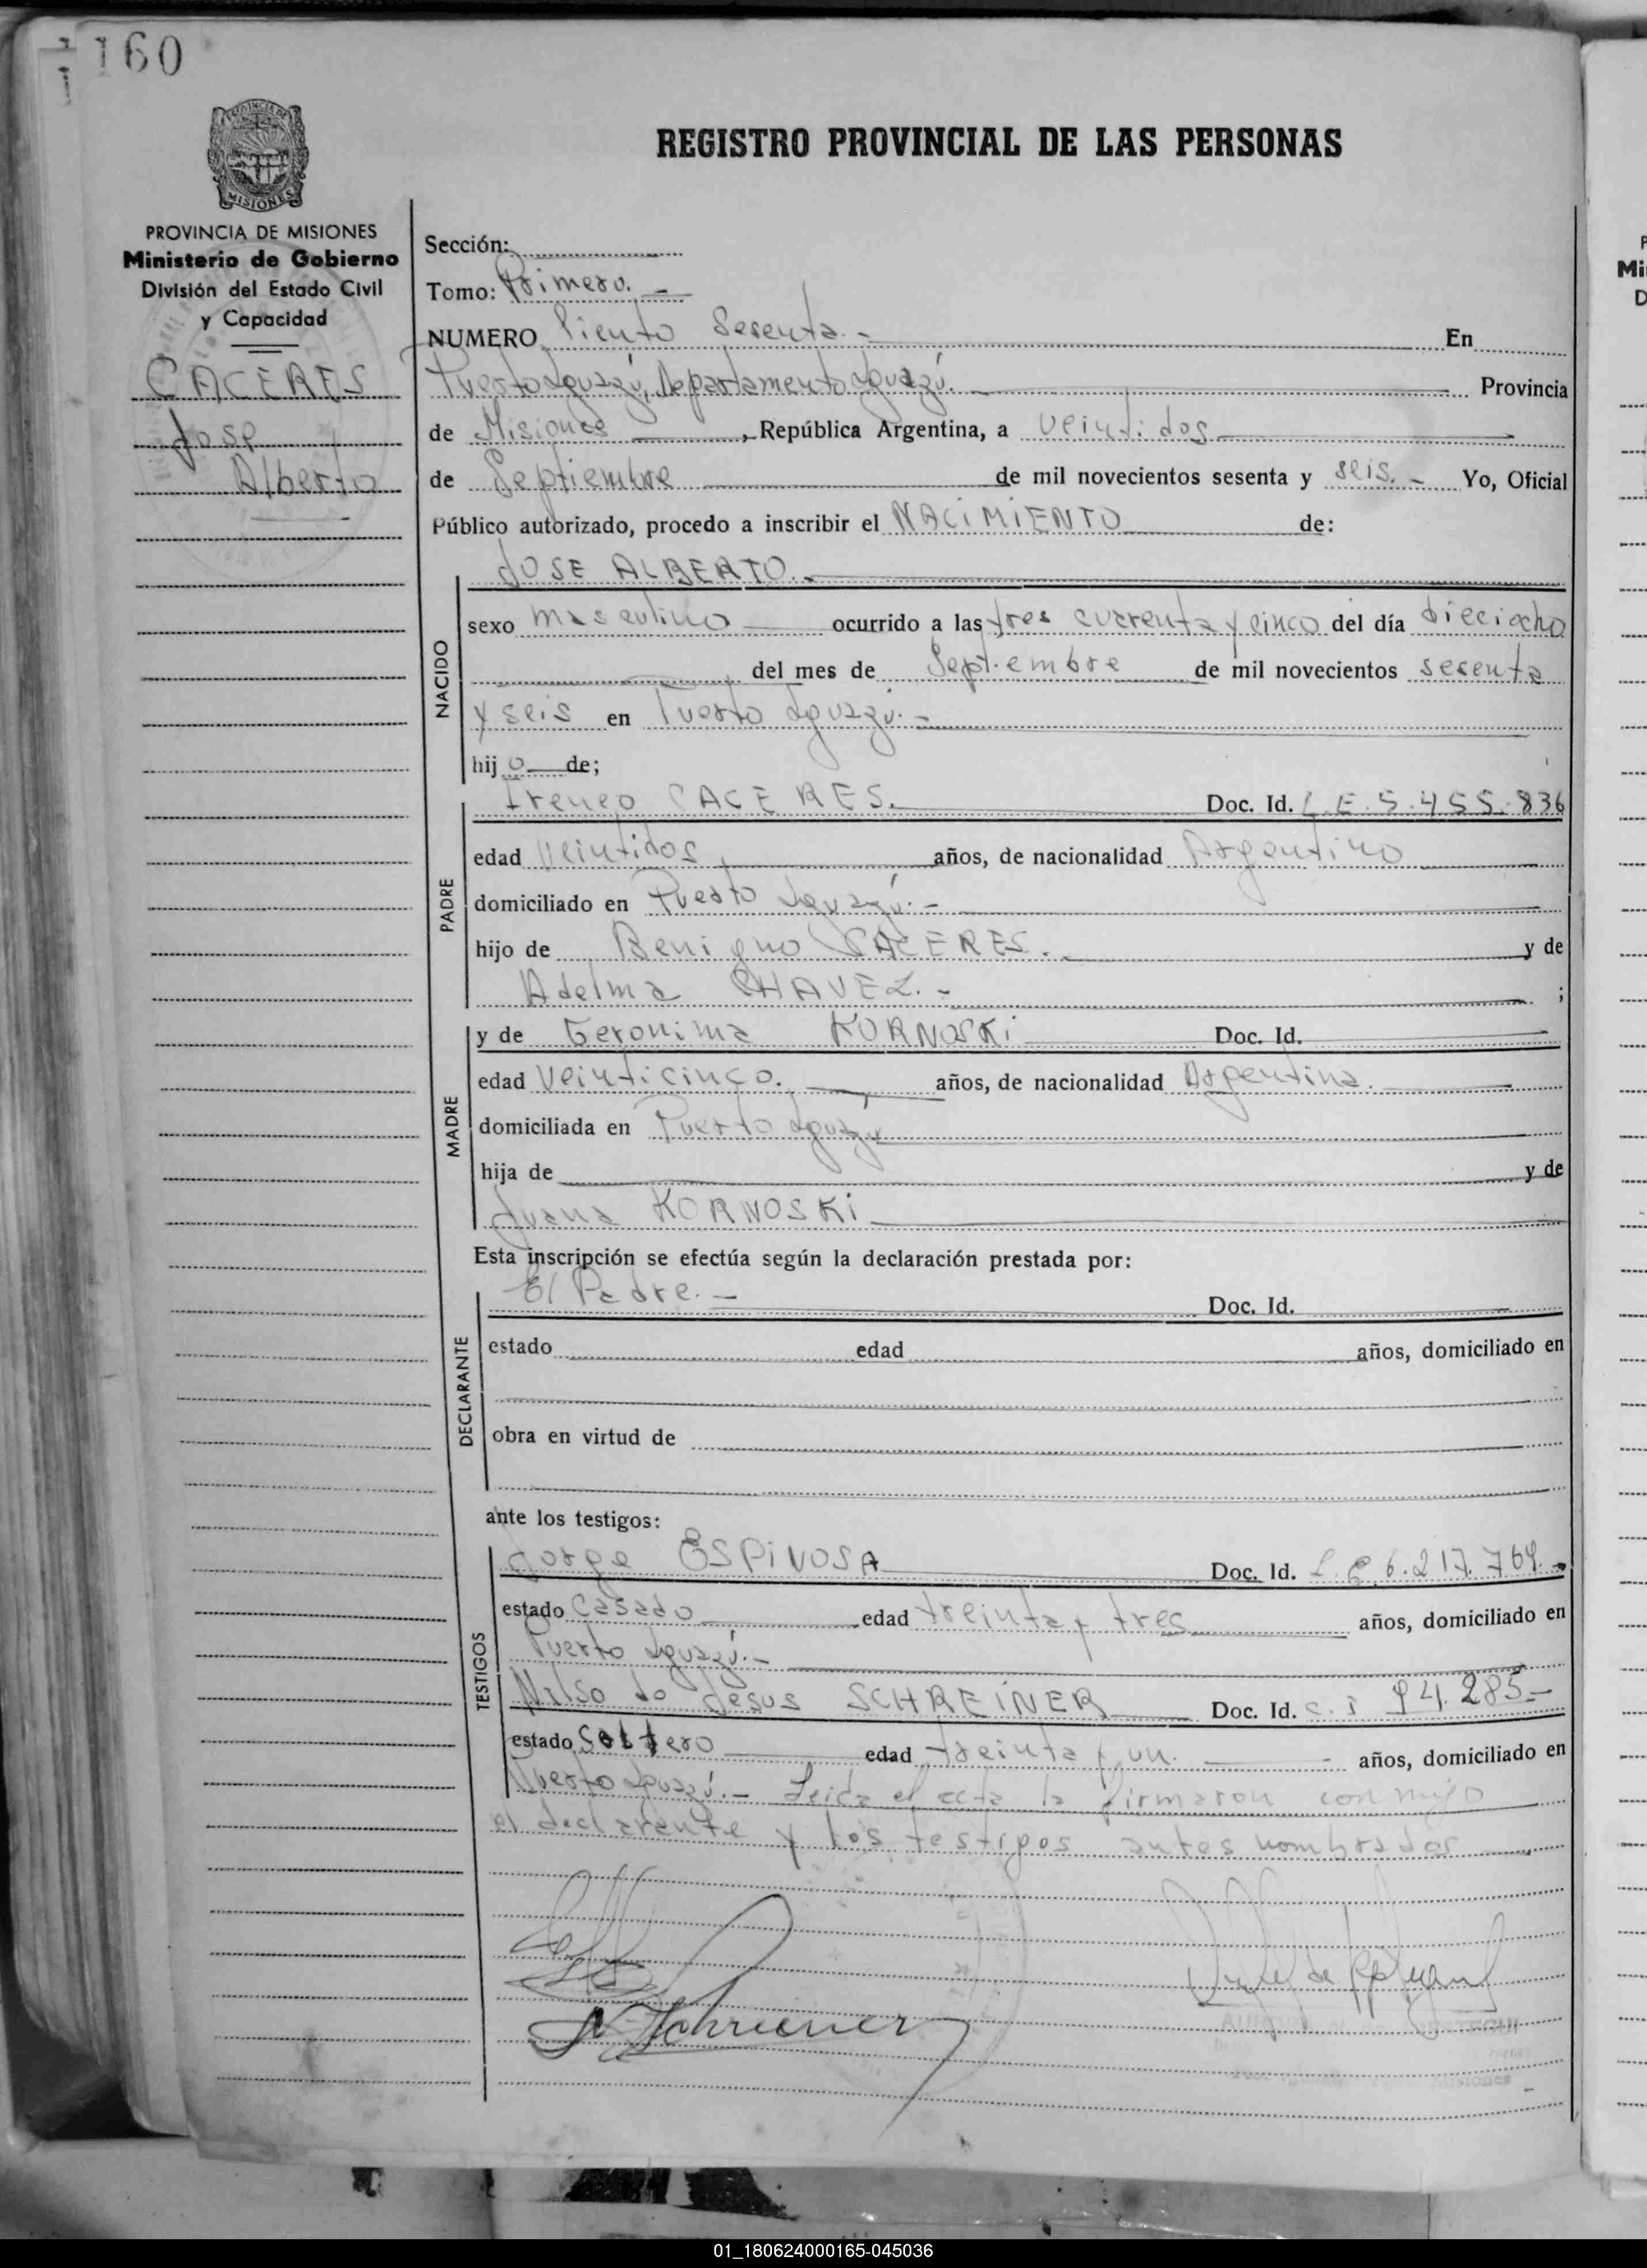 160
PROVINCIA DE MISIONES
Ministerio de Gobierno
División del Estado Civil
y Capacidad
CACERES
José
Alberto
REGISTRO PROVINCIAL DE LAS PERSONAS
Sección:
Tomo: Primero. -
NUMERO Ciento Sesenta. - En
Puerto Iguazú, Departamento Iguazú. Provincia
de Misiones, República Argentina, a veintidos
de Septiembre de mil novecientos sesenta y seis. - Yo, Oficial
Público autorizado, procedo a inscribir el NACIMIENTO de:
JOSE ALBERTO. -
NACIDO
sexo masculino ocurrido a las tres cuarenta y cinco del día dieciocho
del mes de Septiembre de mil novecientos sesenta
y seis en Puerto Iguazú. -
hijo de;
PADRE
Ireneo CACERES. Doc. Id. L.E. 5.455.836
edad veintidos, años, de nacionalidad Argentino
domiciliado en Puerto Iguazú. -
hijo de Benigno CACERES. y de
Adelma CHAVEZ. - ;
MADRE
y de Geronima KORNOSKI Doc. Id.
edad veinticinco. años, de nacionalidad Argentina.
domiciliada en Puerto Iguazú
hija de y de
Juana KORNOSKI
Esta inscripción se efectúa según la declaración prestada por:
DECLARANTE
El Padre. - Doc. Id.
estado edad años, domiciliado en
obra en virtud de
ante los testigos:
TESTIGOS
Jorge ESPINOSA Doc. Id. L.E 6.217.764. -
estado casado edad treinta y tres años, domiciliado en
Puerto Iguazú. -
Nilso do Jesus SCHREINER Doc. Id. C.I 94.285 -
estado Soltero edad treinta y un. años, domiciliado en
Puerto Iguazú. - Leida el acta la firmaron conmigo
el declarante y los testigos antes nombrados
N Schreiner
01_180624000165-045036